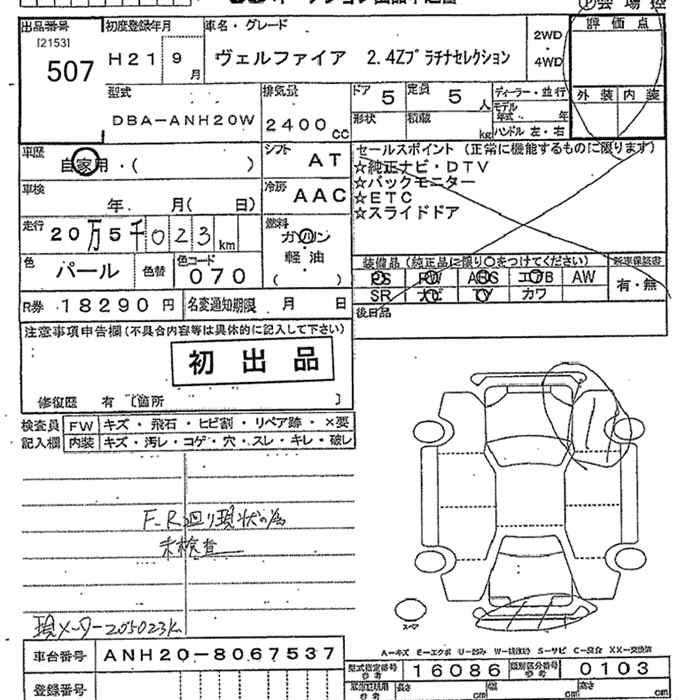 会場控
出品番号 初度登録年月 車名・グレード 評価点
[2153]
507 H21 9月 ヴェルファイア 2.4Zプラチナセレクション 2WD・4WD
型式 排気量 ドア 5 定員 5人 ディーラー・並行 外装 内装
DBA-ANH20W 2400cc 形状 積載 kg モデル年式 年 ハンドル 左・右
車歴 自家用・( ) シフト AT セールスポイント (正常に機能するものに限ります)
☆純正ナビ・DTV
☆バックモニター
車検 年 月( 日) 冷房 AAC ☆ETC
☆スライドドア
走行 20万5千023km 燃料 ガソリン
軽・油
( )
色 パール 色替 色コード 070 装備品(純正品に限り○をつけてください) 新車保証書
PS PW ABS エアB AW 有・無
R券 18290円 名変通知期限 月 日 SR ナビ TV カワ
後日品
注意事項申告欄(不具合内容等は具体的に記入して下さい)
初出品
修復歴 有 [箇所 ]
検査員 FW キズ・飛石・ヒビ割・リペア跡・×要
記入欄 内装 キズ・汚レ・コゲ・穴・スレ・キレ・破レ
F-R廻り現状の為
未検査
現メーター205023K
スペア
A-キズ E-エクボ U-凹み W-補修跡 S-サビ C-腐食 XX-交換済
車台番号 ANH20-8067537 型式指定番号 参考 16086 類別区分番号 参考 0103
登録番号 参考 長さ cm 幅 cm 高さ cm